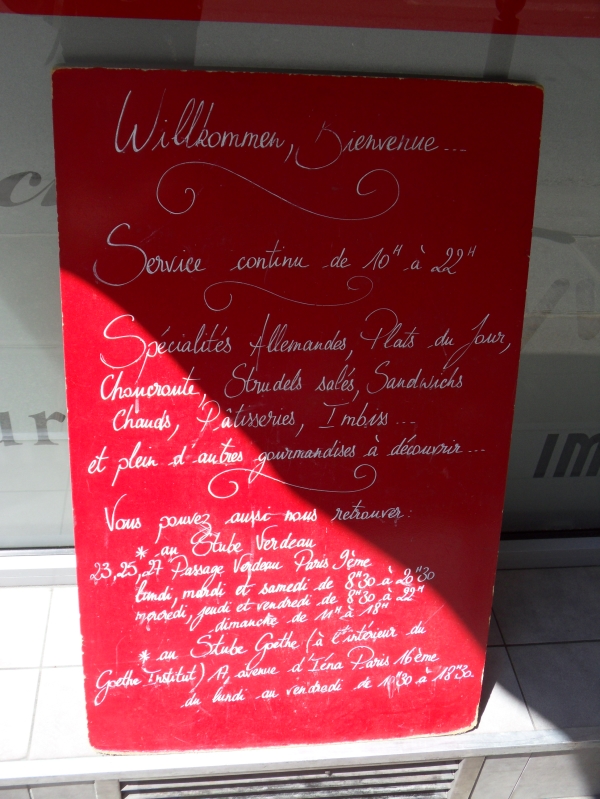 Willkommen, Bienvenue...
Service continu de 10H à 22H
Spécialités Allemandes, Plats du Jour,
Choucroute, Strudels salés, Sandwichs
Chauds, Pâtisseries, Imbiss...
et plein d'autres gourmandises à découvrir...
Vous pouvez aussi nous retrouver:
* au Stube Verdeau
23, 25, 27 Passage Verdeau Paris 9ème
lundi, mardi et samedi de 8H30 à 20H30
mercredi, jeudi et vendredi de 8H30 à 22H
dimanche de 11H à 18H
* au Stube Goethe (à l'intérieur du
Goethe Institut) 17, avenue d'Iéna Paris 16ème
du lundi au vendredi de 10H30 à 18H30.
IM